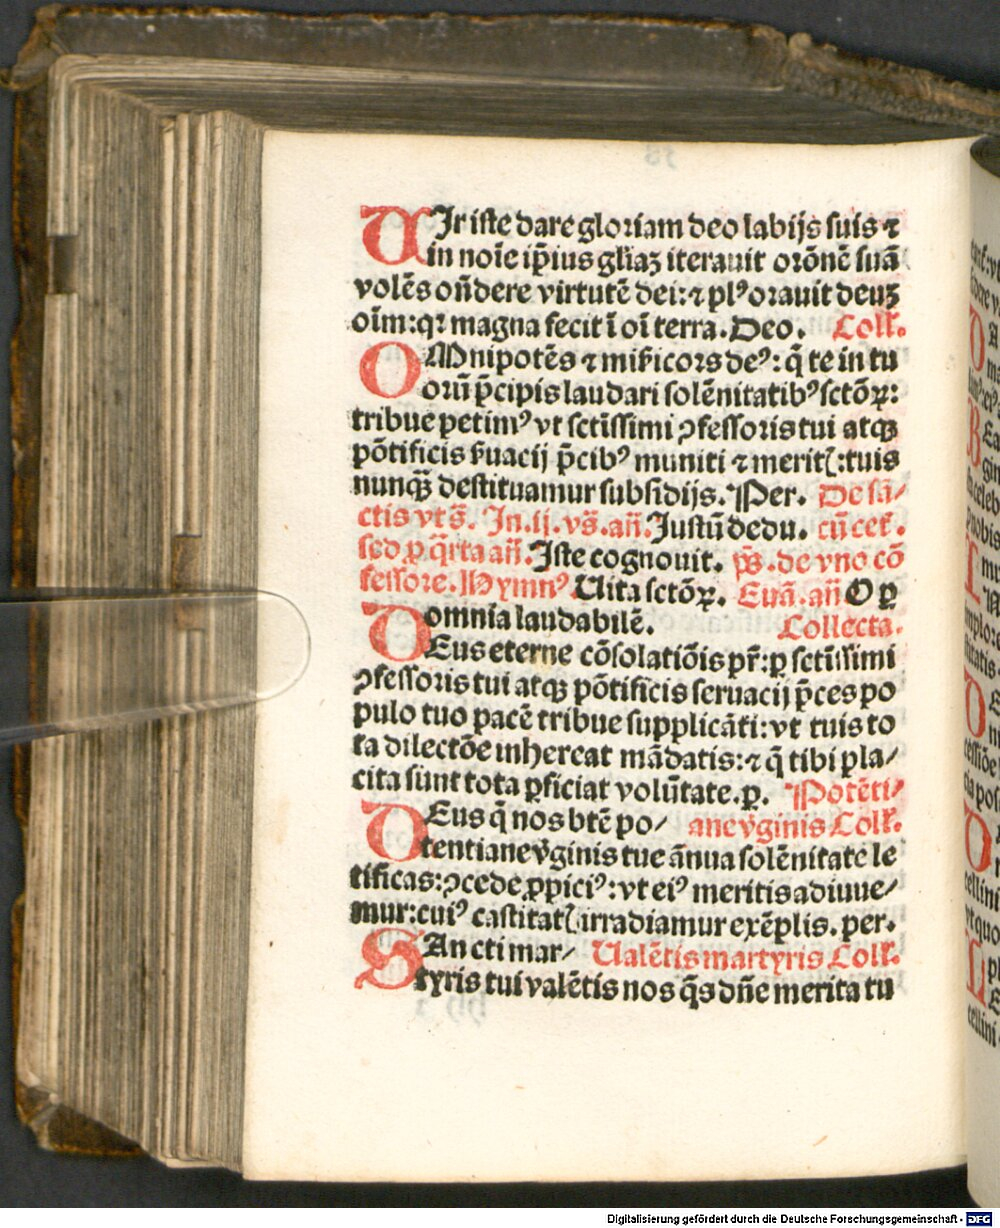 UIr iste dare gloriam deo labijs suis ⁊
in noīe ip̄ius gl̄iaꝫ iterauit orōnē suā
volēs oñdere virtutē dei: ⁊ plꝰ orauit deuꝫ
oīm: qꝛ magna fecit ī oī terra. Deo. Coll̕.
OMnipotēs ⁊ mis̄icors deꝰ: q̄ te in tu
orū p̄cipis laudari solēnitatibꝰ sctōꝝ:
tribue petimꝰ vt sctīssimi ꝯfessoris tui atqꝫ
pōtificis s̄uacij p̄cibꝰ muniti ⁊ meritꝭ: tuis
nunqꝫ̄ destituamur subsidijs. Per. De sā/
ctis vt s̄. In .ij. vs̄. añ. Justū dedu. cū cet̕.
sed ꝓ q̄rta añ. Iste cognouit. ps̄. de vno cō
fessore. Hymnꝰ Uita sctōꝝ. Euā. añ O ꝑ
omnia laudabilē. Collecta.
DEus eterne cōsolatiōis pr̄: ꝑ sctīssimi
ꝯfessoris tui atqꝫ pōtificis seruacij p̄ces po
pulo tuo pacē tribue supplicāti: vt tuis to
ta dilectōe inhereat mādatis: ⁊ q̄ tibi pla/
cita sunt tota ꝑficiat volūtate. ꝑ. Potēti/
DEus q̄ nos btē po/ ane v̄ginis Coll̕.
tentiane v̄ginis tue ānua solēnitate le
tificas: ꝯcede ꝓpiciꝰ: vt eiꝰ meritis adiuue/
mur: cuiꝰ castitatꝭ irradiamur exēplis. per.
SAncti mar/ Ualētis martyris Coll̕.
tyris tui valētis nos q̄s dñe merita tu
Digitalisierung gefördert durch die Deutsche Forschungsgemeinschaft - DFG